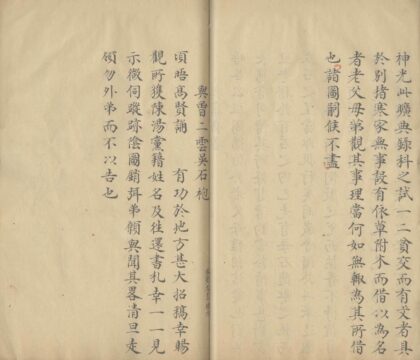 神光此曠典錄科之試一二貧交而有文者具
於別揩寒家無事設有依草附木而借以為名
者老父母弟觀其事理當何如無輒為其所借
也諸圖嗣候不盡
與曾二雲吳石袍
頃晤高賢誦 有功於地方甚大招稿幸暢
觀所獲陳湯黨籍姓名及往還書札幸一一見
示微伺蹤跡陰圖銷弭弟願與聞其畧清旦走
領勿外弟而不以告也